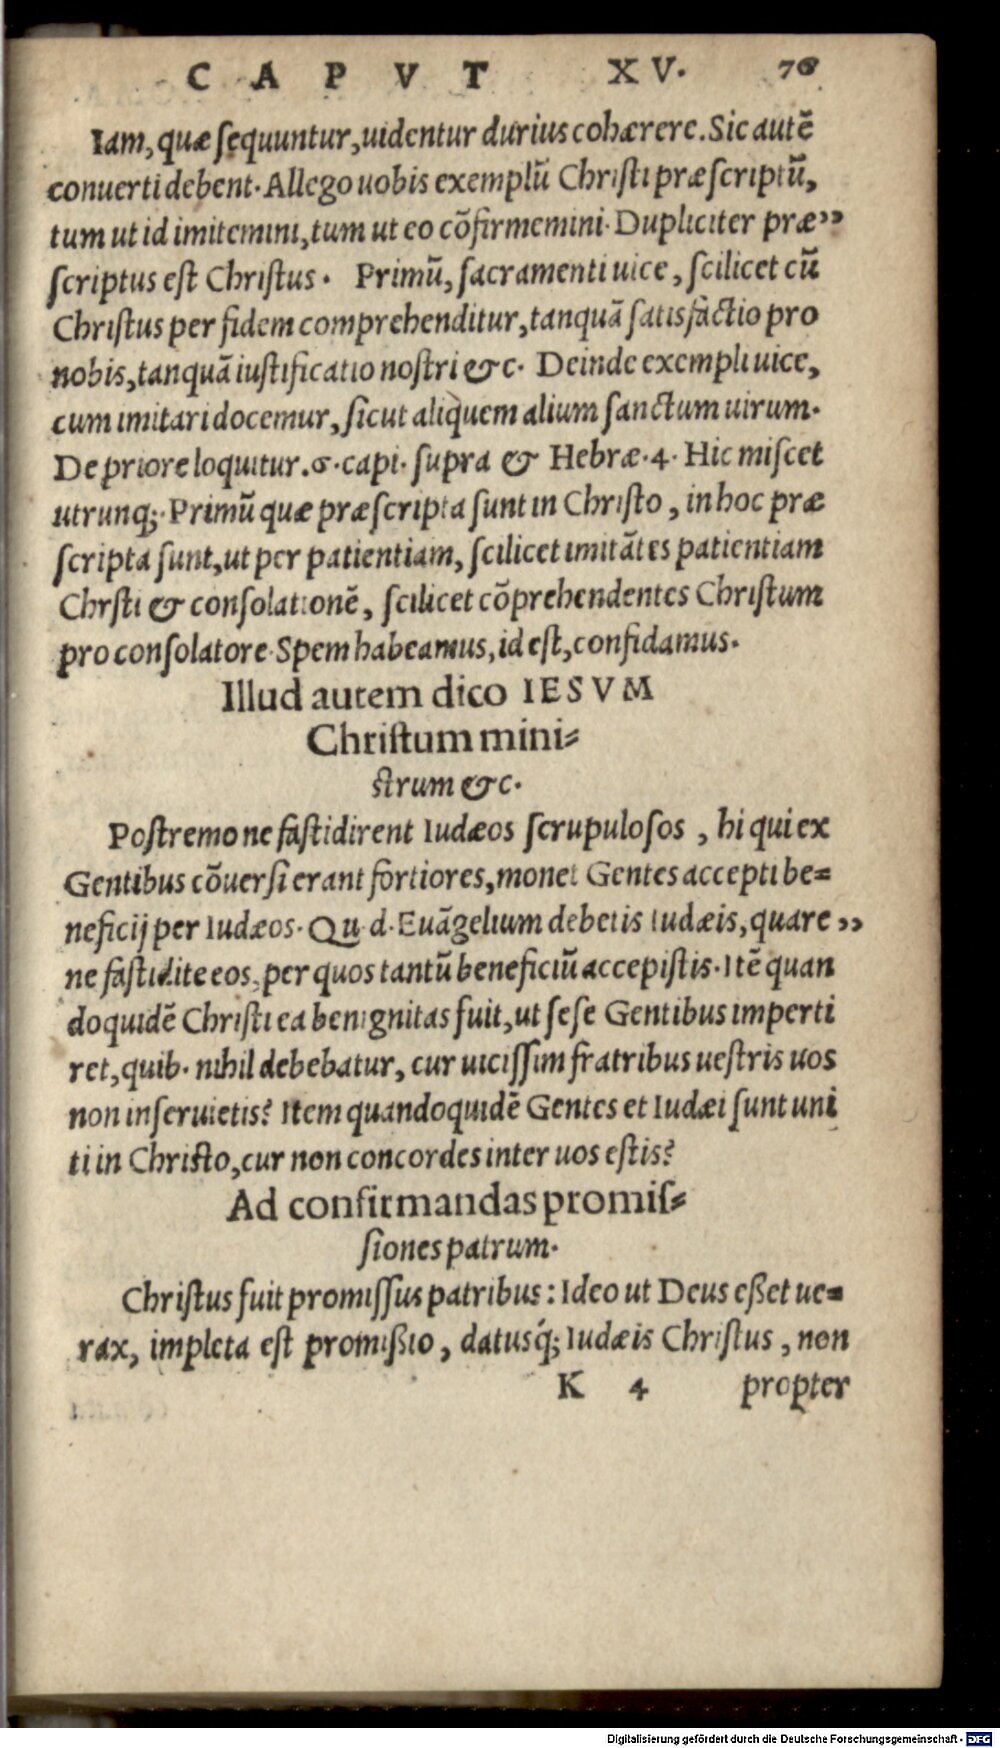 CAPVT XV. 76
Iam, quæ ſequuntur, uidentur durius cohærere. Sic autẽ
conuerti debent. Allego uobis exemplũ Chriſti præſcriptũ,
tum ut id imitemini, tum ut eo cõfirmemini. Dupliciter præ ”
ſcriptus eſt Chriſtus. Primũ, ſacramenti uice, ſcilicet cũ
Chriſtus per fidem comprehenditur, tanquã ſatisfactio pro
nobis, tanquã iuſtificatio noſtri &c. Deinde exempli uice,
cum imitari docemur, ſicut aliquem alium ſanctum uirum.
De priore loquitur .6. capi. ſupra & Hebræ. 4. Hic miſcet
utrunq;. Primũ quæ præſcripta ſunt in Chriſto, in hoc præ
ſcripta ſunt, ut per patientiam, ſcilicet imitãtes patientiam
Chrſti & conſolationẽ, ſcilicet cõprehendentes Chriſtum
pro conſolatore. Spem habeamus, id eſt, confidamus.
Illud autem dico IESVM
Chriſtum mini-
ſtrum &c.
Poſtremo ne faſtidirent Iudæos ſcrupuloſos, hi qui ex
Gentibus cõuerſi erant fortiores, monet Gentes accepti be-
neficij per Iudæos. Qu. d. Euãgelium debetis Iudæis, quare ”
ne faſtidite eos, per quos tantũ beneficiũ accepiſtis. Itẽ quan
doquidẽ Chriſti ea benignitas fuit, ut ſeſe Gentibus imperti
ret, quib. nihil debebatur, cur uiciſſim fratribus ueſtris uos
non inſeruietis? Item quandoquidẽ Gentes et Iudæi ſunt uni
ti in Chriſto, cur non concordes inter uos eſtis?
Ad confirmandas promiſ-
ſiones patrum.
Chriſtus fuit promiſſus patribus: Ideo ut Deus eßet ue-
rax, impleta eſt promißio, datusq́; Iudæis Chriſtus, non
K 4 propter
Digitalisierung gefördert durch die Deutsche Forschungsgemeinschaft - DFG